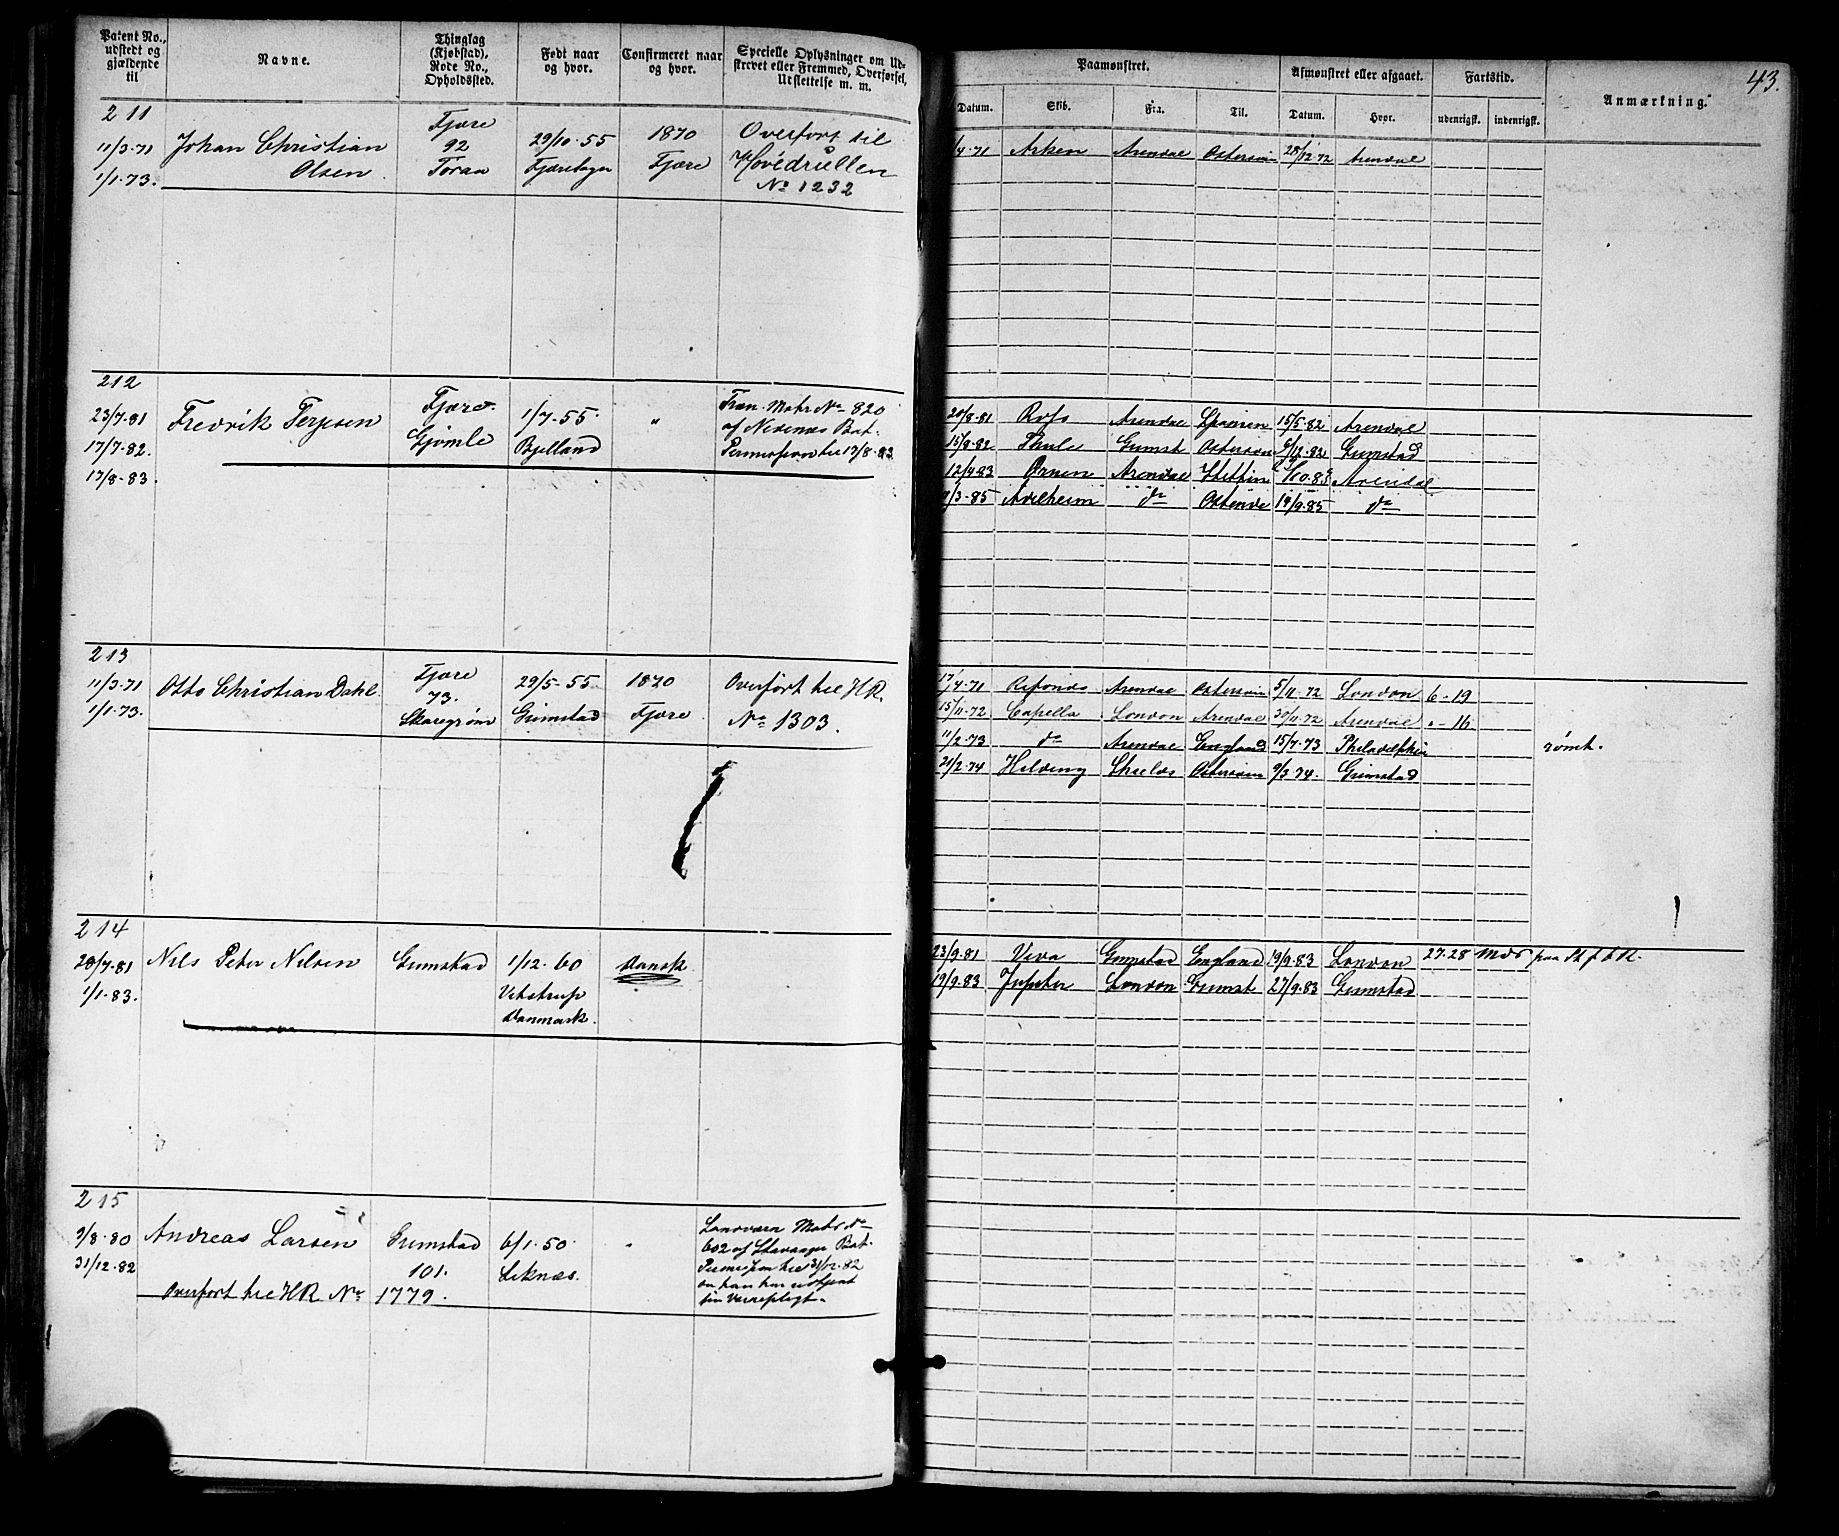 43.
Patent No., udstedt og gjældende til
Navne.
Thinglag (Kjøbstad), Rode No., Opholdssted.
Født naar og hvor.
Confirmeret naar og hvor.
Specielle Oplysninger om Udskrevet eller Fremmed, Overførsel, Udslettelse m. m.
Paamønstret.
Afmønstret eller afgaaet.
Fartstid.
Anmærkning.
Datum.
Skib.
Fra.
Til.
Datum.
Hvor.
udenrigsk.
indenrigsk.
211
11/3-71
1/1-73.
Johan Christian
Olsen
Fjære
92
29/10-55
1870
Fjære
Overført til
Hovedrullen
No 1232
4-71 Arken Arendal Østersøen 28/12-72 Arendal
212
23/7-81
17/7-82.
17/8-83.
Fredrik Terjesen
Fjære.
Gjømle
1/7-55.
Bjelland
"
Træn. Matr No 820
af Nedenæs Bat.
Permission til 17/8-83
20/8-81 Arendal 15/5-82 Arendal
15/9-82 Thule Grimst Østersøen 6/12-82 Grimstad
12/4-83 Ørnen Arendal Stettin 10-83 Arendal
3-85 Adelheim do Ostende 19/9-85 do
213
11/3-71
1/1-73.
Otto Christian Dahl
Fjære
73.
Skaregrøm
29/5-55
Grimstad
1870
Fjære
Overført til HR.
No 1303.
17/4-71 Arendal Østersøen 5/11-72 London 6-19
15/11-72 Capella London Arendal 30/11-72 Arendal "-16
11/2-73 do Arendal England 15/7-73 Philadelphia rømt.
21/2-74 Hilding Shields Østersøen 9/3-74. Grimstad
214
28/7-81
1/1-83.
Nils Peter Nilsen
Grimstad
1/12-60
Danmark.
Dansk
23/9-81 Viva Grimstad England 19/9-83 London 27.28
19/9-83 Jupiter London Grimst 27/9-83 Grimstad
215
9/8-80
31/12-82
Andreas Larsen
Overført til HR No 1779.
Grimstad
101.
6/1-50.
Leknæs.
"
Landværn Matr No
602 af Stavanger Bat.
Permission til 31/12-82
da han har udtjent
sin Værnepligt.